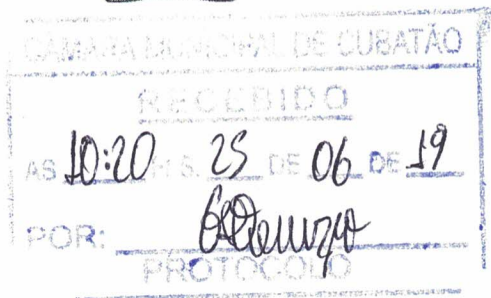 CÂMARA MUNICIPAL DE CUBATÃO
RECEBIDO
AS 10:20 HS. 25 DE 06 DE 19
POR:
PROTOCOLO